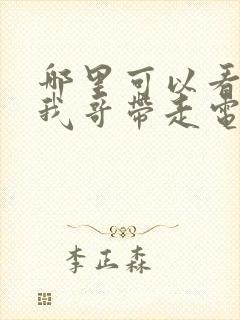 哪里可以看
我哥带走电
李正森